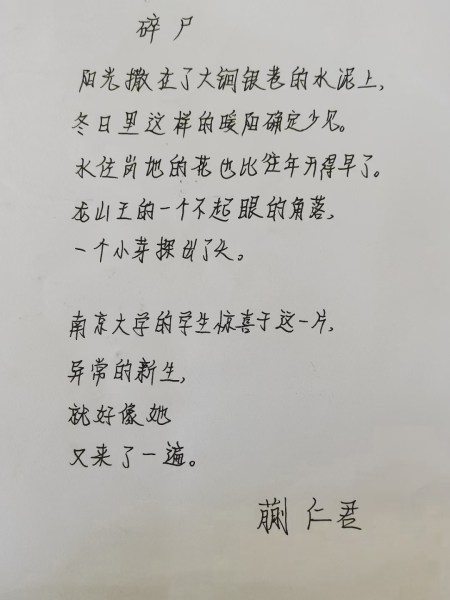 碎尸
阳光撒在了大锏银巷的水泥上，
冬日里这样的暖阳确定少见。
水佐岗地的花也比往年开得早了。
龙山王的一个不起眼的角落，
一个小芽探出了头。
南京大学的学生惊喜于这一片，
异常的新生，
就好像她
又来了一遍。
蒯仁君